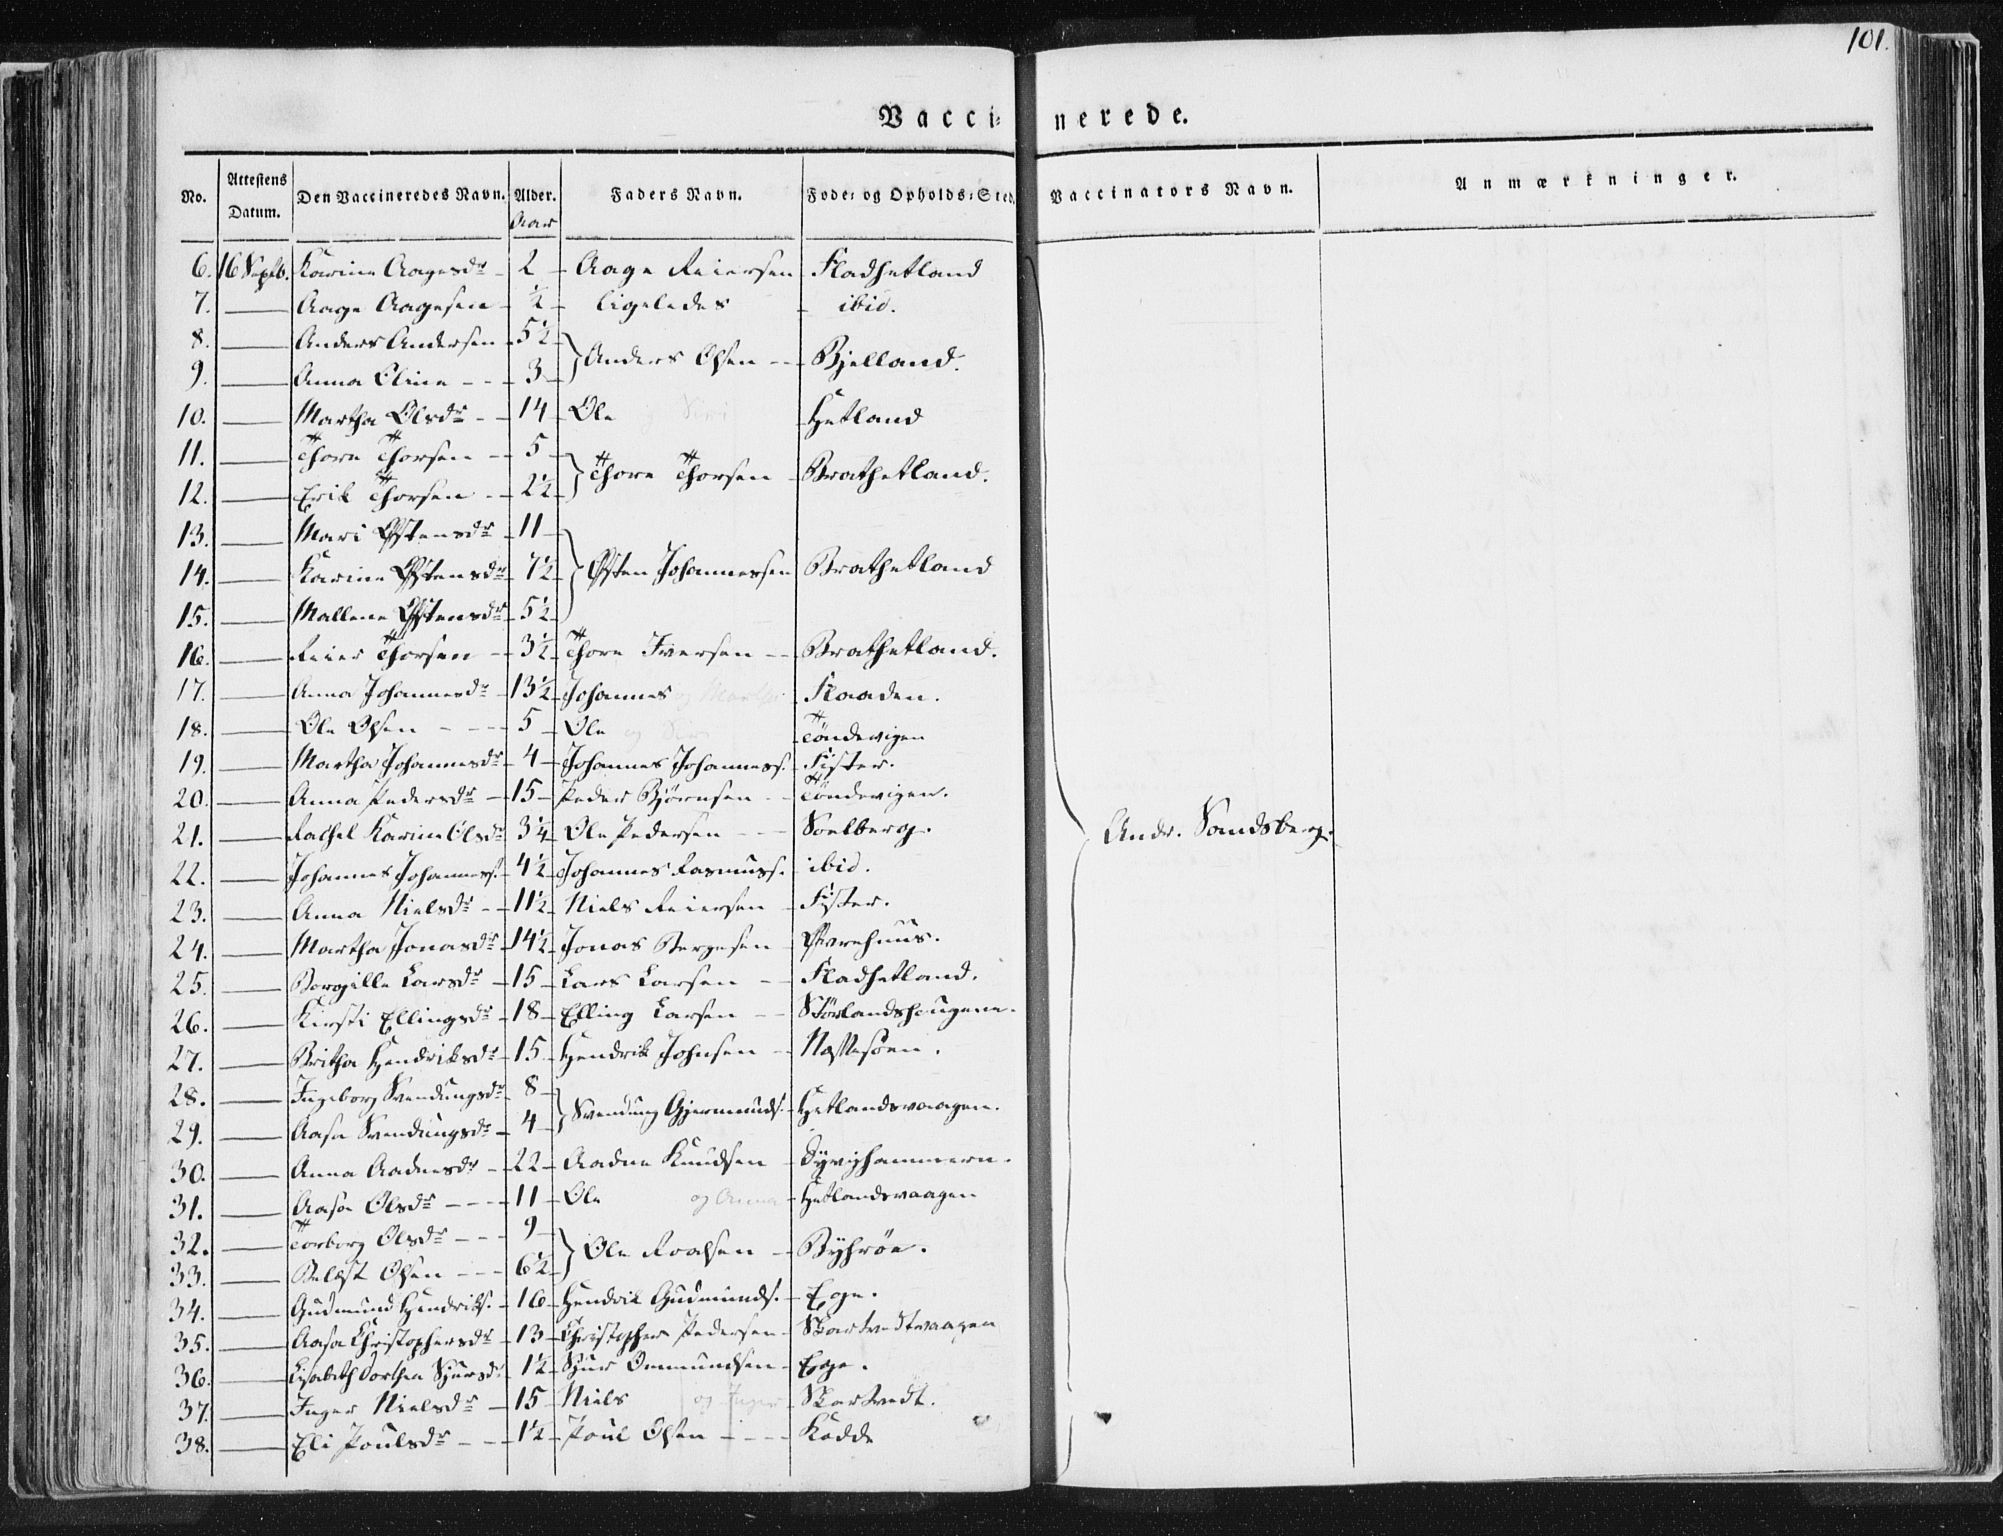 101.
Vaccinerede.
No. Attestens Datum. Den Vaccineredes Navn. Alder. Aar Faders Navn. Føde- og Opholds-Sted. Vaccinators Navn. Anmærkninger.
6. 16 Septb. Karine Aagesdr 2 Aage Reiersen Fladhetland
7. Aage Aagesen ½ ligeledes ibid.
8. Anders Andersen 5½
Anders Olsen Bjelland.
9. Anna Oline 3
10. Martha Olsdr 14 Ole og Siri Hetland
11. Thore Thorsen 5
Thore Thorsen Brathetland.
12. Erik Thorsen 2½
13. Mari Østensdr 11
14. Karine Østensdr 7½ Østen Johannessen Brathetland
15. Mallene Østensdr 5½
16. Reier Thorsen 3½ Thore Iversen Brathetland.
17. Anna Johannesdr 13½ Johannes og Martha Flaaden.
18. Ole Olsen 5 Ole og Siri Töndevigen
19. Martha Johannesdr 4 Johannes Johanness. Fister.
20. Anna Pedersdr 15 Peder Bjørnsen Töndevigen.
21. Rachel Karine Olsdr 3¼ Ole Pedersen Soelberg.
22. Johannes Johanness. 4½ Johannes Rasmuss. ibid.
Andr. Sandsberg.
23. Anna Nielsdr 11½ Niels Reiersen Fister.
24. Martha Jonasdr 14½ Jonas Bergesen Øvrehuus.
25. Borgille Larsdr 15 Lars Larsen Fladhetland.
26. Kirsti Ellingsdr 18 Elling Larsen
27. Britha Hendriksdr 15 Hendrik Johnsen
28. Ingeborg Svendungsdr 8
Svendung Gjermunds. Hetlandsvaagen.
29. Aasa Svendungsdr 4
30. Anna Aadnesdr 22 Aadne Knudsen Dyvighammern.
31. Aasa Olsdr 11 Ole og Anna Hetlandsvaagen
32. Torborg Olsdr 9
Ole Roalsen Byhrøe.
33. Olsen 6½
34. Gudmund Hendriks. 16 Hendrik Gudmunds. Ege.
35. Aasa Christophersdr 13 Christopher Pedersen Skartvedtvaagen
36. Lisabeth Dorthea Sjursdr 1½ Sjur Ommundsen Ege.
37. Inger Nielsdr 15 Niels og Inger Skartvedt.
38. Eli Poulsdr 1½ Poul Olsen Kodde